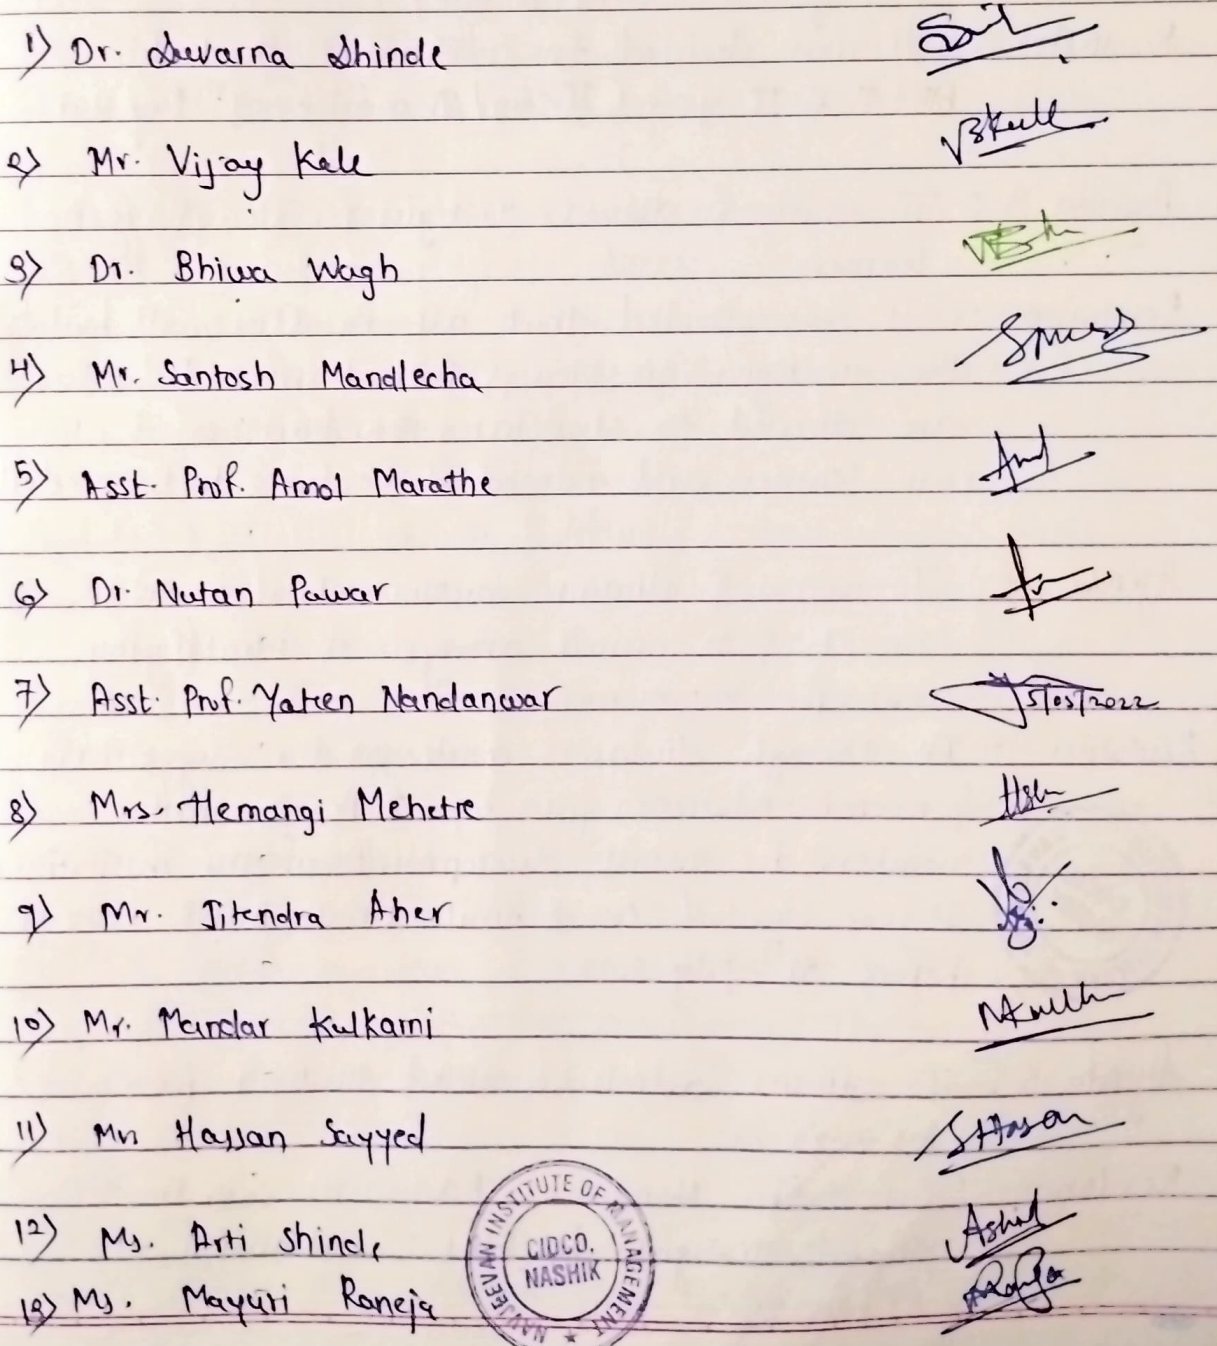 1) Dr. Suvarna Shinde
2) Mr. Vijay Kale
3) Dr. Bhiwa Wagh
4) Mr. Santosh Mandlecha
5) Asst. Prof. Amol Marathe
6) Dr. Nutan Pawar
7) Asst. Prof. Yateen Nandanwar 5/05/2022
8) Mrs. Hemangi Mehetre
9) Mr. Jitendra Aher
10) Mr. Mandar Kulkarni
11) Mr. Hassan Sayyed SHasan
12) Ms. Arti Shinde
13) Ms. Mayuri Raneja
NAVJEEVAN INSTITUTE OF MANAGEMENT
CIDCO,
NASHIK